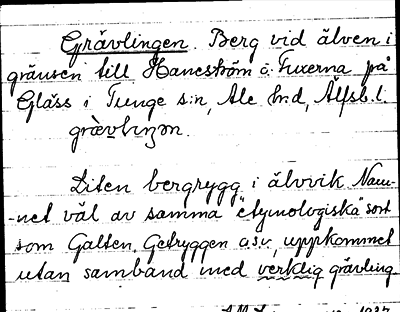 Grävlingen. Berg vid älven i
gränsen till Haneström o. Fuxerna på
Gläss i Tunge s:n, Ale hrd, Älfsb. l.
grävlıŋən.
Liten bergrygg i älvvik Nam-
-net väl av samma "etymologiska" sort
som Galten, Getryggen o.s.v., uppkommet
utan samband med verklig grävling.
1937